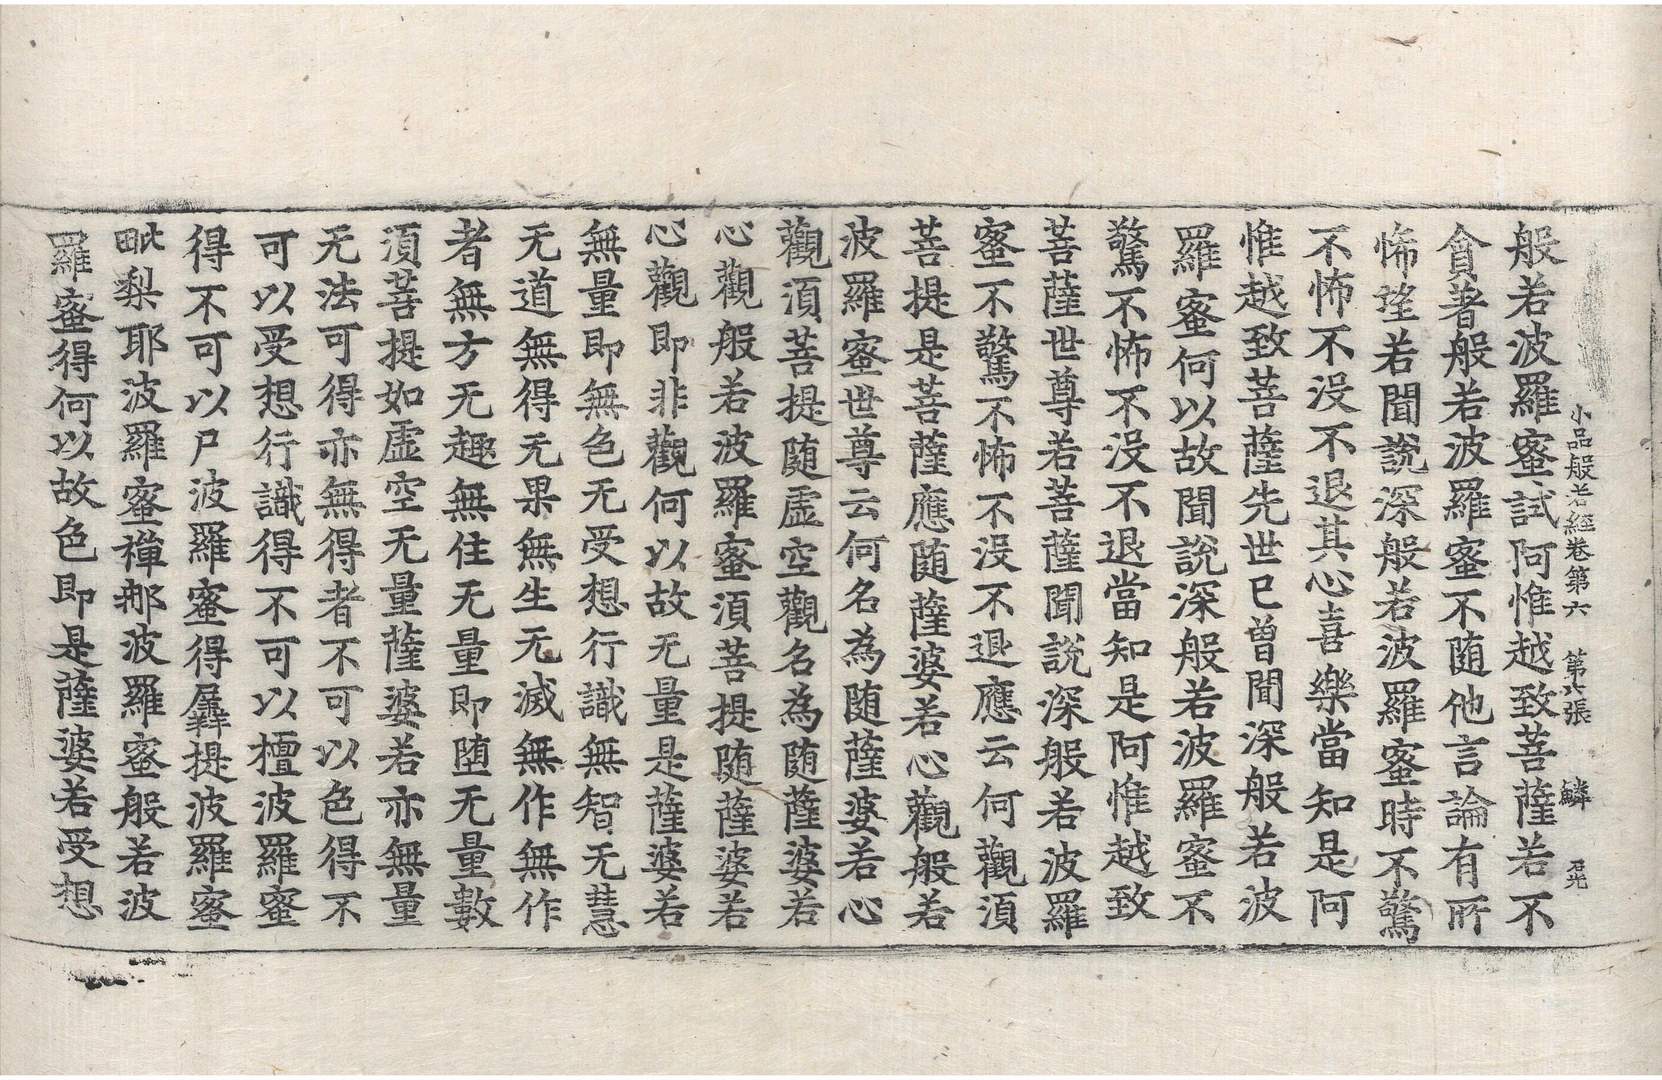 小品般若經卷第六 第六張 鱗
般若波羅蜜試阿惟越致菩薩若不
貪著般若波羅蜜不随他言論有所
怖望若聞說深般若波羅蜜時不驚
不怖不没不退其心喜樂當知是阿
惟越致菩薩先世已曾聞深般若波
羅蜜何以故聞說深般若波羅蜜不
驚不怖不没不退當知是阿惟越致
菩薩世尊若菩薩聞說深般若波羅
蜜不驚不怖不没不退應云何觀湏
菩提是菩薩應随薩婆若心觀般若
波羅蜜世尊云何名為随薩婆若心
觀湏菩提随虛空觀名為随薩婆若
心觀般若波羅蜜湏菩提随薩婆若
心觀即非觀何以故无量是薩婆若
無量即無色无受想行識無智无慧
无道無得无果無生无滅無作無作
者無方无趣無住无量即堕无量數
湏菩提如虛空无量薩婆若亦無量
无法可得亦無得者不可以色得不
可以受想行識得不可以檀波羅蜜
得不可以尸波羅蜜得羼提波羅蜜
毗梨耶波羅蜜禪那波羅蜜般若波
羅蜜得何以故色即是薩婆若受想